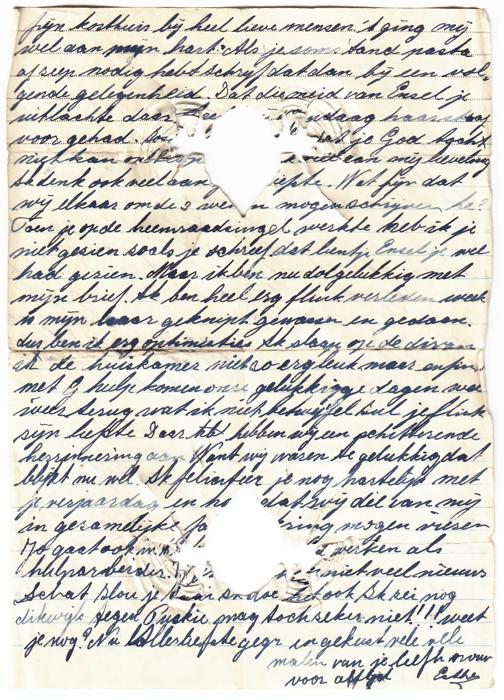 fijn kosthuis bij heel lieve mensen 't ging mij
wel aan mijn hart. Als je soms tand pasta
of zeep nodig hebt schrijf dat dan bij een vol-
gende gelegenheid. Dat die meid van Ensel je
uitlachte daar vandaag haar
voor gehad. dat je God
niet kan ontlopen aan mij lieveling
ik denk ook veel aan liefste. Wat fijn dat
wij elkaar om de 3 weken mogen schrijven he?
Toen je op de heemraadsingel werkte heb ik je
niet gezien soals je schreef dat lientje Ensel je wel
had gezien. Maar ik ben nu dolgelukkig met
mijn brief. Ik ben heel erg flink verleden week
is mijn haar geknipt gewassen en gedaan.
dus ben ik erg optimisties Ik slaap op de divan
in de huiskamer niet zo erg leuk maar enfin
met G hulp komen onze gelukkige dagen wel
weer terug wat ik niet betwijfel Zul je flink
zijn liefste Daar hebben wij een schitterende
herrinnering aan Want wij waren te gelukkig dat
blijkt nu wel. Ik feliciteer je nog hartelijk met
je verjaardag en dat wij die van mij
in gezamelijke mogen vieren
Jo gaat ook werken als
hulp niet veel nieuws
Schat ook Ik zei nog
dikwijls tegen mag toch zeker niet!!! weet
je nog? Nu Allerliefste gegr en gekust vele vele
malen van je liefh vrouw
voor altijd Esther